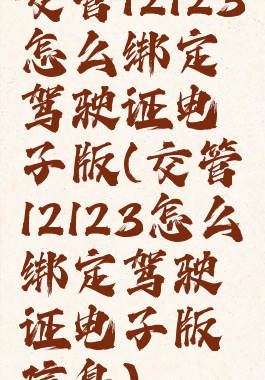 交管12123
怎么绑定
驾驶证电
子版(交管
12123怎么
绑定驾驶
证电子版
信息)